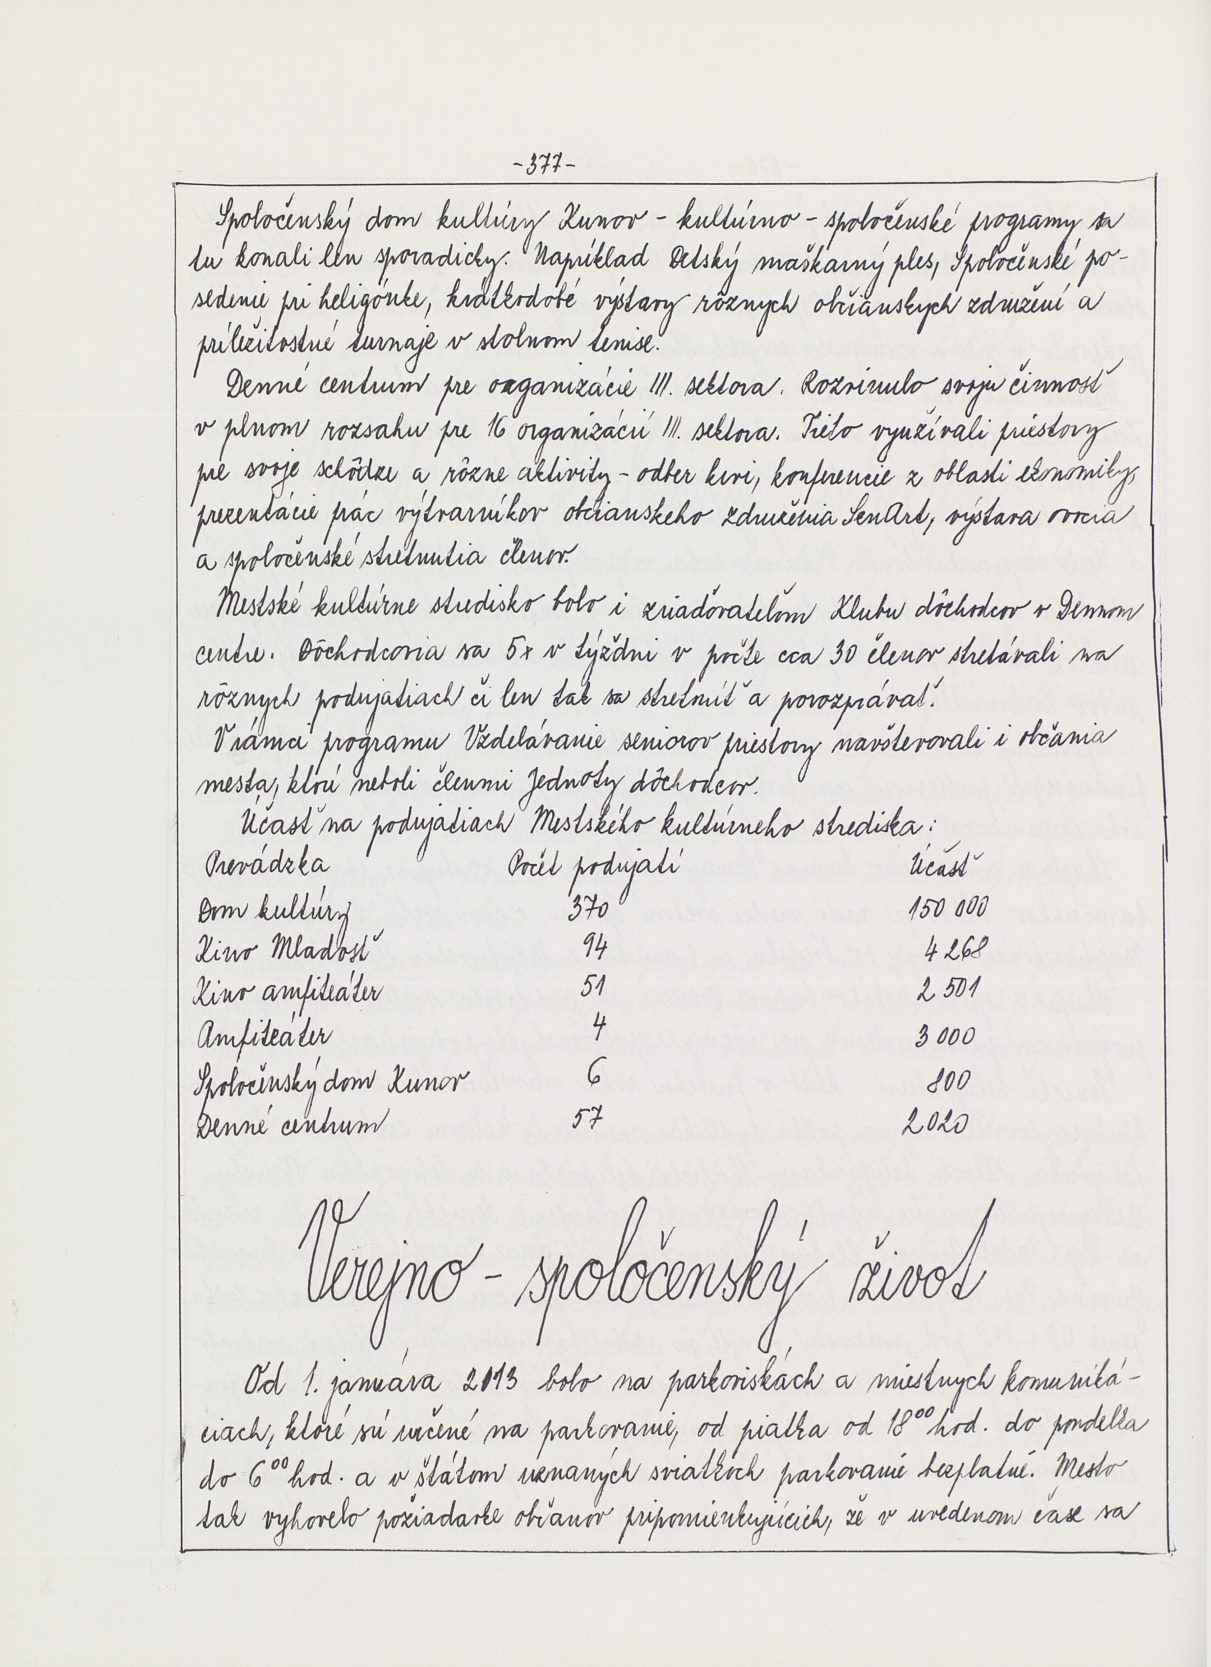 -377-
Spoločenský dom kultúry Kunov - kultúrno - spoločenské programy sa
tu konali len sporadicky. Napríklad Detský maškarný ples, Spoločenské po-
sedenie pri heligónke, krátkodobé výstavy rôznych občianskych združení a
príležitostné turnaje v stolnom tenise.
Denné centrum pre organizácie III. sektora. Rozvinulo svoju činnosť
v plnom rozsahu pre 16 organizácií III. sektora. Tieto využívali priestory
pre svoje schôdze a rôzne aktivity - odber krvi, konferencie z oblasti ekonomiky,
prezentácie prác výtvarníkov občianskeho združenia SenArt, výstava ovocia
a spoločenské stretnutia členov.
Mestské kultúrne stredisko bolo i zriaďovateľom Klubu dôchodcov v Dennom
centre. Dôchodcovia sa 5x v týždni v počte cca 30 členov stretávali na
rôznych podujatiach či len tak sa stretnúť a porozprávať.
V rámci programu Vzdelávanie seniorov priestory navštevovali i občania
mesta, ktorí neboli členmi Jednoty dôchodcov.
Účasť na podujatiach Mestského kultúrneho strediska:
Prevádzka Počet podujatí Účasť
Dom kultúry 370 150 000
Kino Mladosť 94 4 268
Kino amfiteáter 51 2 501
Amfiteáter 4 3 000
Spoločenský dom Kunov 6 800
Denné centrum 57 2 020
Verejno - spoločenský život
Od 1. januára 2013 bolo na parkoviskách a miestnych komuniká-
ciach, ktoré sú určené na parkovanie, od piatka od 18⁰⁰ hod. do pondelka
do 6⁰⁰ hod. a v štátom uznaných sviatkoch parkovanie bezplatné. Mesto
tak vyhovelo požiadavke občanov pripomienkujúcich, že v uvedenom čase sa